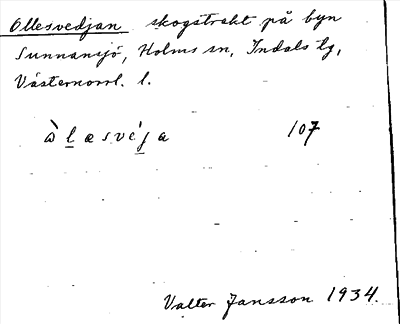 Ollesvedjan skogstrakt på byn
Sunnansjö, Holms sn, Indals tg,
Västernorrl. l.
107
Valter Jansson 1934.